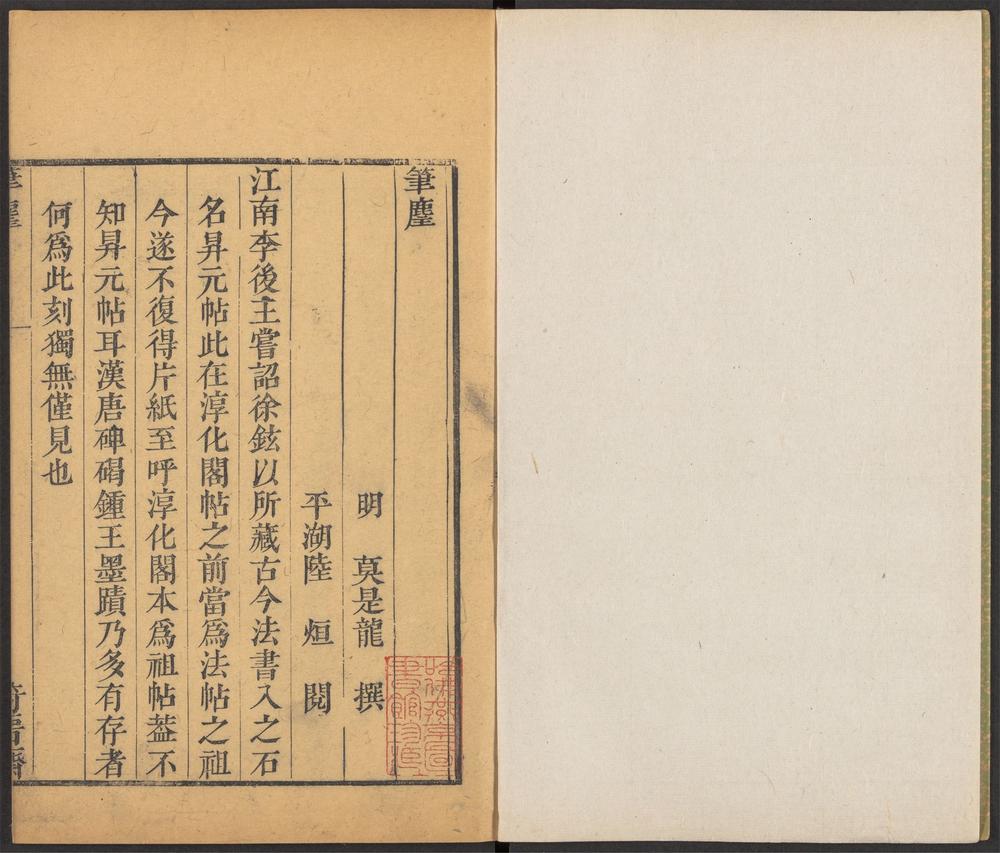 筆麈
明 莫是龍 撰
平湖陸 烜 閱
江南李後主嘗詔徐鉉以所藏古今法書入之石
名昇元帖此在淳化閣帖之前當爲法帖之祖
今遂不復得片紙至呼淳化閣本爲祖帖葢不
知昇元帖耳漢唐碑碣鍾王墨蹟乃多有存者
何爲此刻獨無僅見也
筆麈
一
哈佛燕京圖書館珍藏